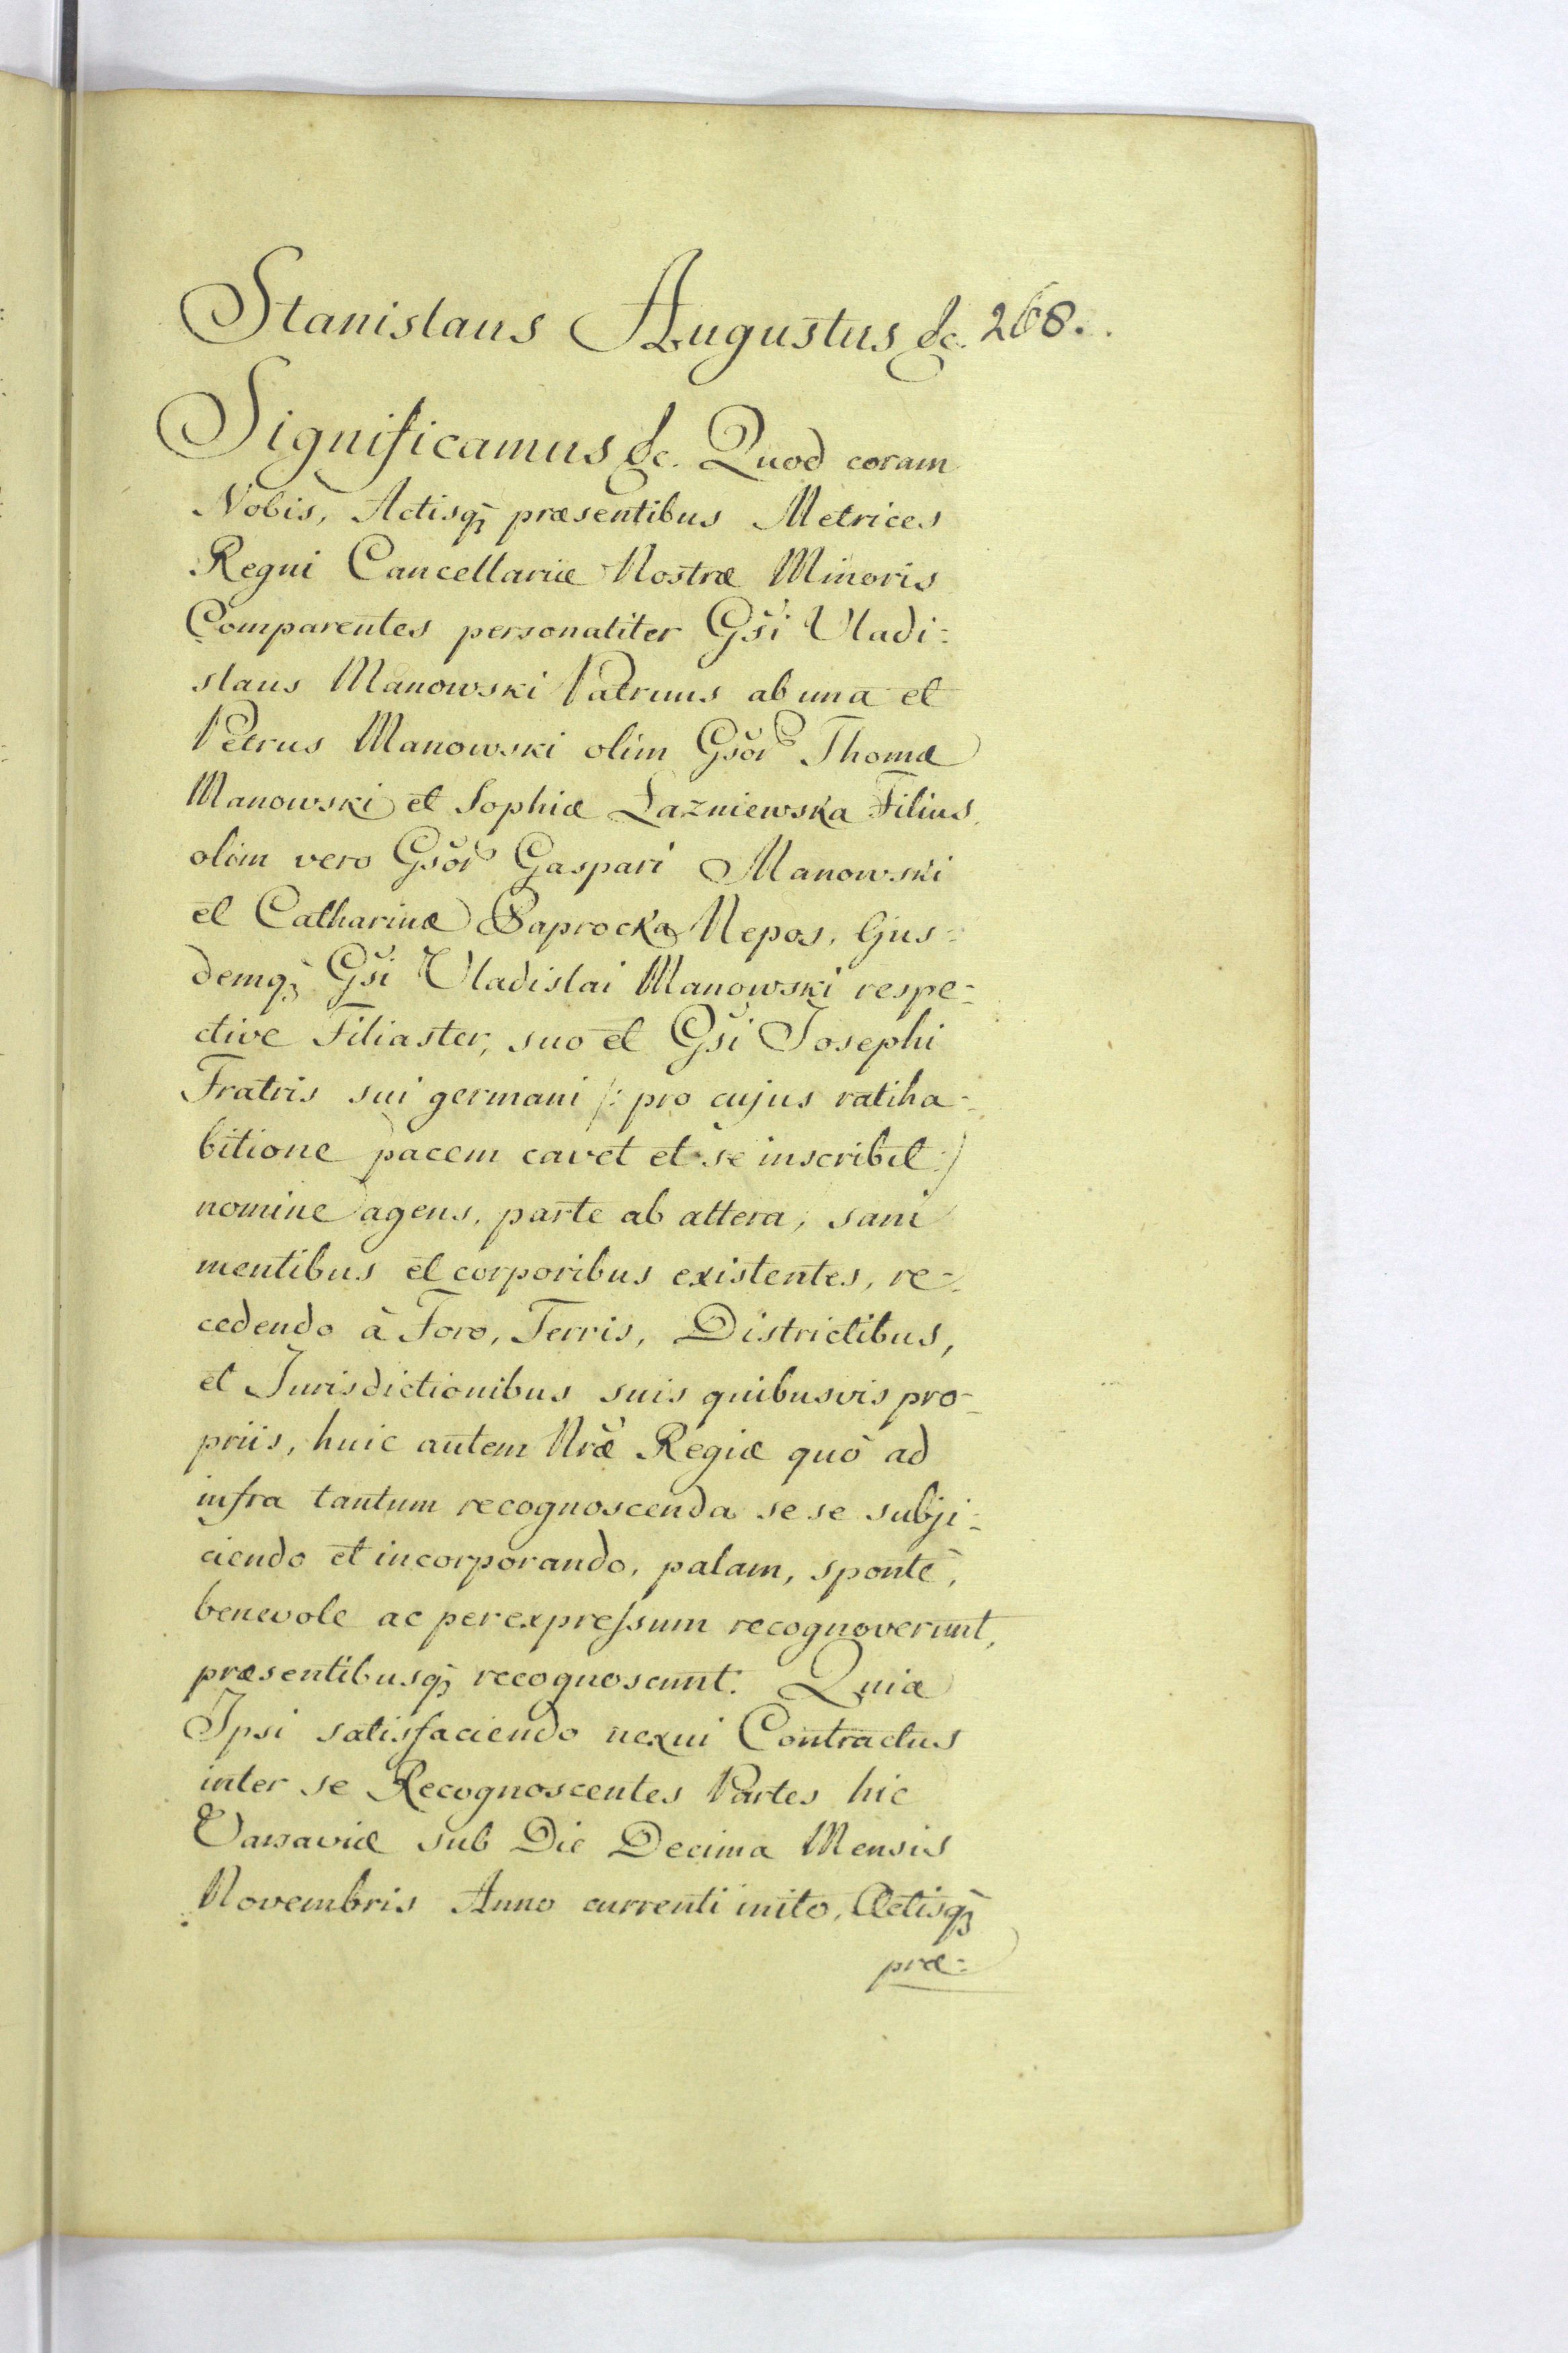 Stanislaus Augustus &c. 268.
Significamus &c. Quod coram
Nobis, Actisq̃ præsentibus Metrices
Regni Cancellariæ Nostræ Minoris
Comparentes personaliter Gsi Vladi=
slaus Manowski Patruus ab una et
Petrus Manowski olim Gsor Thomæ
Manowski et Sophiæ Łazniewska Filius,
olim vero Gsor Gaspari Manowski
et Catharinæ Paprocka Nepos, Ejus=
demq̃ Gsi Vladislai Manowski respe=
ctive Filiaster, suo et Gsi Josephi
Fratris sui germani /: pro cujus ratiha=
bitione pacem cavet et se inscribit :/
nomine agens, parte ab altera, sani
mentibus et corporibus existentes, re=
cedendo à Foro, Terris, Districtibus,
et Jurisdictionibus suis quibusvis pro=
priis, huic autem Nræ Regiæ quò ad
infra tantum recognoscenda se se subji=
ciendo et incorporando, palam, spontè,
benevole ac per expressum recognoverunt,
præsentibusq̃ recognoscunt. Quia
Ipsi satisfaciendo nexui Contractus
inter se Recognoscentes Partes hic
Varsaviæ sub Die Decima Mensis
Novembris Anno currenti inito, Actisq̃
præ=